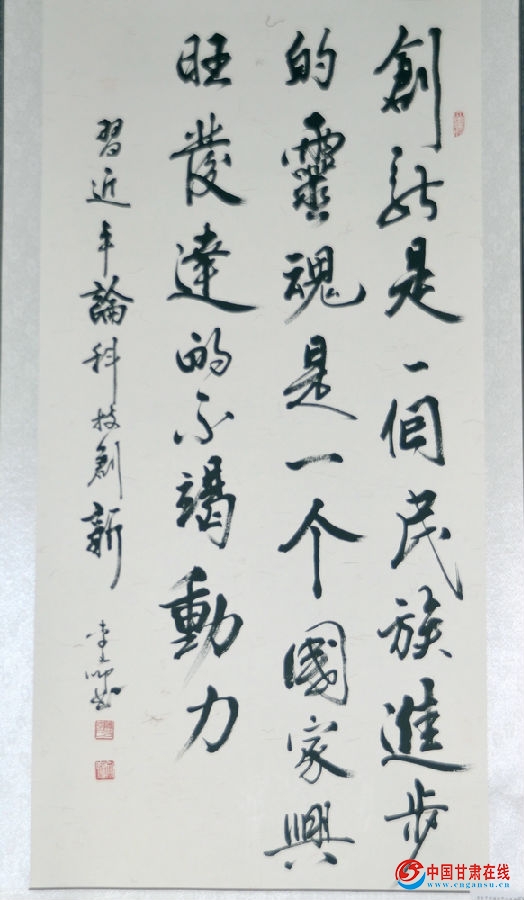 創新是一個民族進步
的靈魂是一个國家興
旺發達的不竭動力
習近平論科技創新
中国甘肃在线
www.cngansu.cn